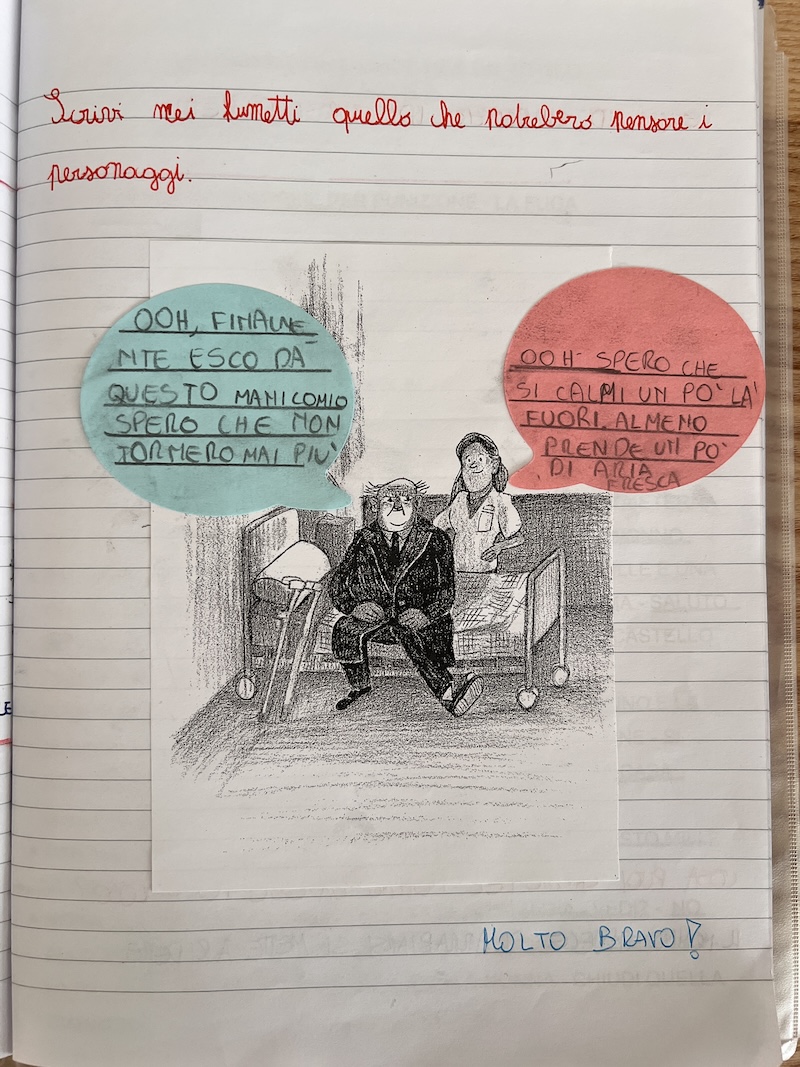 Scrivi nei fumetti quello che potrebero pensare i
personaggi.
OOH, FINALNE
NTE ESCO DA
QUESTO MANICOMIO
SPERO CHE NON
TORNERO MAI PIU'
OOH SPERO CHE
SI CALMI UN PO' LA'
FUORI. ALMENO
PRENDE UN PO'
DI ARIA
FRESCA
MOLTO BRAVO!